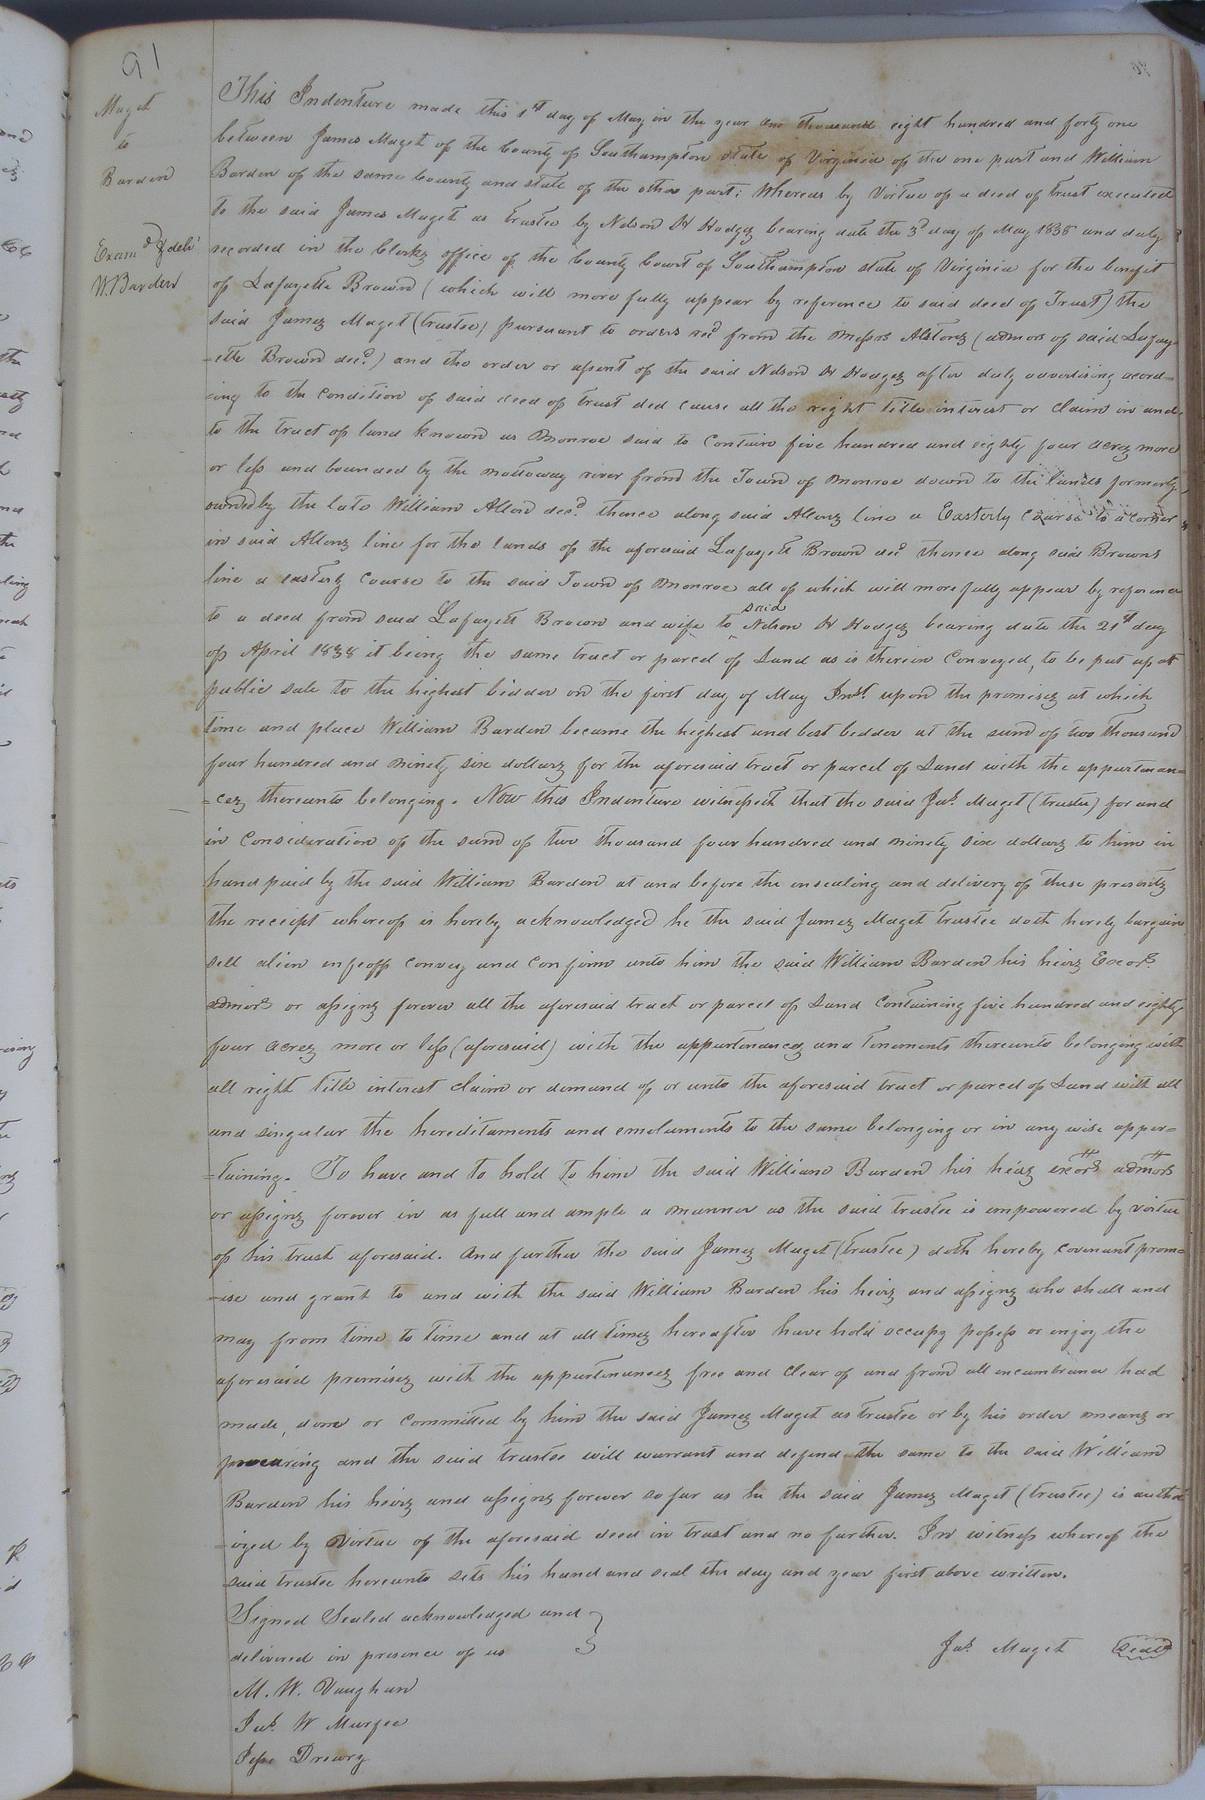 91
Maget
to
Barden
Exam.d & deld
W. Barden
This Indenture made this 1st day of May in the year one thousand eight hundred and forty one
between James Maget of the County of Southampton state of Virginia of the one part and William
Barden of the same County and state of the other part: Whereas by Virtue of a deed of trust executed
to the said James Maget as trustee by Nelson H Hodges bearing date the 3d day of May 1838 and duly
recorded in the Clerks office of the County Court of Southampton state of Virginia for the benefit
of Lafayette Brown (which will more fully appear by reference to said deed of Trust) the
said James Maget (trustee) pursuant to orders recd from the Messrs Alstons (admors of said Lafay-
-ette Brown decd) and the order or assent of the said Nelson H Hodges after duly advertising acord-
ing to the condition of said deed of trust did cause all the right title interest or claim in and
to the tract of land known as Monroe said to contain five hundred and eighty four acres more
or less and bounded by the Nottoway river from the Town of Monroe down to the lands formerly
owned by the late William Allen decd thence along said Allens line a Easterly course to a corner
in said Allens line for the lands of the aforesaid Lafayett Brown decd thence along said Browns
line a easterly course to the said Town of Monroe all of which will more fully appear by reference
to a deed from said Lafayett Brown and wife to said Nelson H Hodges bearing date the 21st day
of April 1838 it being the same tract or parcel of Land as is therein Conveyed, to be put up at
public sale to the highest bidder on the first day of May Inst. upon the premises at which
time and place William Barden became the highest and best bidder at the sum of two thousand
four hundred and ninety six dollars for the aforesaid tract or parcel of Land with the appurtenan-
=ces thereunto belonging. Now this Indenture witnesseth that the said Jas. Maget (trustee) for and
in Consideration of the sum of two thousand four hundred and ninety six dollars to him in
hand paid by the said William Barden at and before the ensealing and delivery of these presents
the receipt whereof is hereby acknowledged he the said James Maget trustee doth hereby bargain
sell alien enfeoff convey and confirm unto him the said William Barden his heirs Exors
admors or assigns forever all the aforesaid tract or parcel of Land Containing five hundred and eighty
four acres more or less (aforesaid) with the appurtenances and tenements thereunto belonging with
all right title interest claim or demand of or unto the aforesaid tract or parcel of Land with all
and singular the hereditaments and emoluments to the same belonging or in any wise apper=
=taining. To have and to hold to him the said William Barden his heirs exors admors
or assigns forever in as full and ample a manner as the said trustee is empowered by virtue
of his trust aforesaid. And further the said James Maget (trustee) doth hereby covenant prom=
-ise and grant to and with the said William Barden his heirs and assigns who shall and
may from time to time and at all times hereafter have hold occupy possess or enjoy the
aforesaid premises with the appurtenances free and clear of and from all incumbrance had
made, done or committed by him the said James Maget as trustee or by his order means or
procuring and the said trustee will warrant and defend the same to the said William
Barden his heirs and assigns forever so far as he the said James Maget (trustee) is author
-ized by virtue of the aforesaid deed in trust and no further. In witness whereof the
said trustee hereunto sets his hand and seal the day and year first above written.
Signed Sealed acknowledged and
delivered in presence of us
Jas. Maget Seal
M. W. Vaughan
Jas. W Murfee
Jesse Drewry